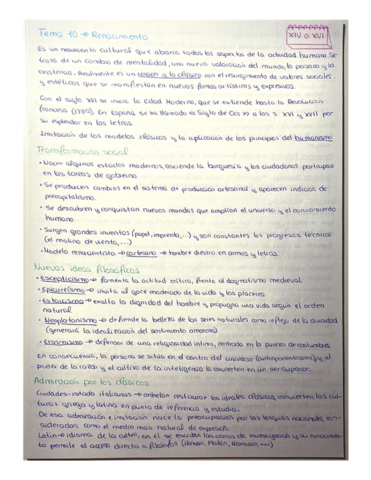 Tema 10 → Renacimiento
XIV a XVI
Es un movimiento cultural que abarca todos los aspectos de la actividad humana. Se
trata de un cambio de mentalidad, una nueva valoración del mundo, la persona y la
existencia. Realmente es un volver a lo clásico con el resurgimiento de valores sociales
y estéticos que se manifiestan en nuevas formas artísticas y expresivas.
Con el siglo XVI se inicia la Edad Moderna, que se extiende hasta la Revolución
francesa (1789). En España se ha llamado el "Siglo de Oro" a los s. XVI y XVII por
su esplendor en las letras.
Imitación de los modelos clásicos y la aplicación de los principios del humanismo
Transformación social
• Nacen algunos estados modernos, asciende la burguesía y los ciudadanos participan
en las tareas de gobierno.
• Se producen cambios en el sistema de producción artesanal y aparecen indicios de
precapitalismo.
• Se descubren y conquistan nuevos mundos que amplían el universo y el conocimiento
humano.
• Surgen grandes inventos (papel, imprenta,...) y son constantes los progresos técnicos
(el molino de viento,...)
• Modelo renacentista → cortesano → hombre diestro en armas y letras.
Nuevas ideas filosóficas
• Escepticismo → fomenta la actitud crítica, frente al dogmatismo medieval.
• Epicureísmo → invita al goce moderado de la vida y los placeres.
• Estoicismo → exalta la dignidad del hombre y propugna una vida según el orden
natural.
• Neoplatonismo → defiende la belleza de los seres naturales como reflejo de la divinidad
(generará la idealización del sentimiento amoroso)
• Erasmismo → defensor de una religiosidad íntima, centrada en la pureza de costumbres.
En consecuencia, la persona se sitúa en el centro del universo (antropocentrismo), y el
poder de la razón y el cultivo de la inteligencia la convierten en un ser superior.
Admiración por los clásicos
Ciudades-estado italianas → anhelan restaurar los ideales clásicos, convierten las cul-
turas griega y latina en punto de referencia y estudio.
De esa admiración e imitación nace la preocupación por las lenguas nacionales, con-
sideradas como el medio más natural de expresión.
Latín → idioma de la cultura, en él se escriben las obras de investigación y su conocimien-
to permite el acceso directo a filósofos (Homero, Platón, Horacio, ...)